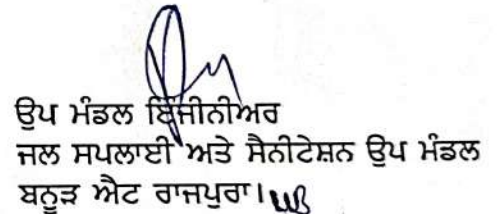 ਉਪ ਮੰਡਲ ਇੰਜੀਨੀਅਰ
ਜਲ ਸਪਲਾਈ ਅਤੇ ਸੈਨੀਟੇਸ਼ਨ ਉਪ ਮੰਡਲ
ਬਨੂੜ ਐਟ ਰਾਜਪੁਰਾ।